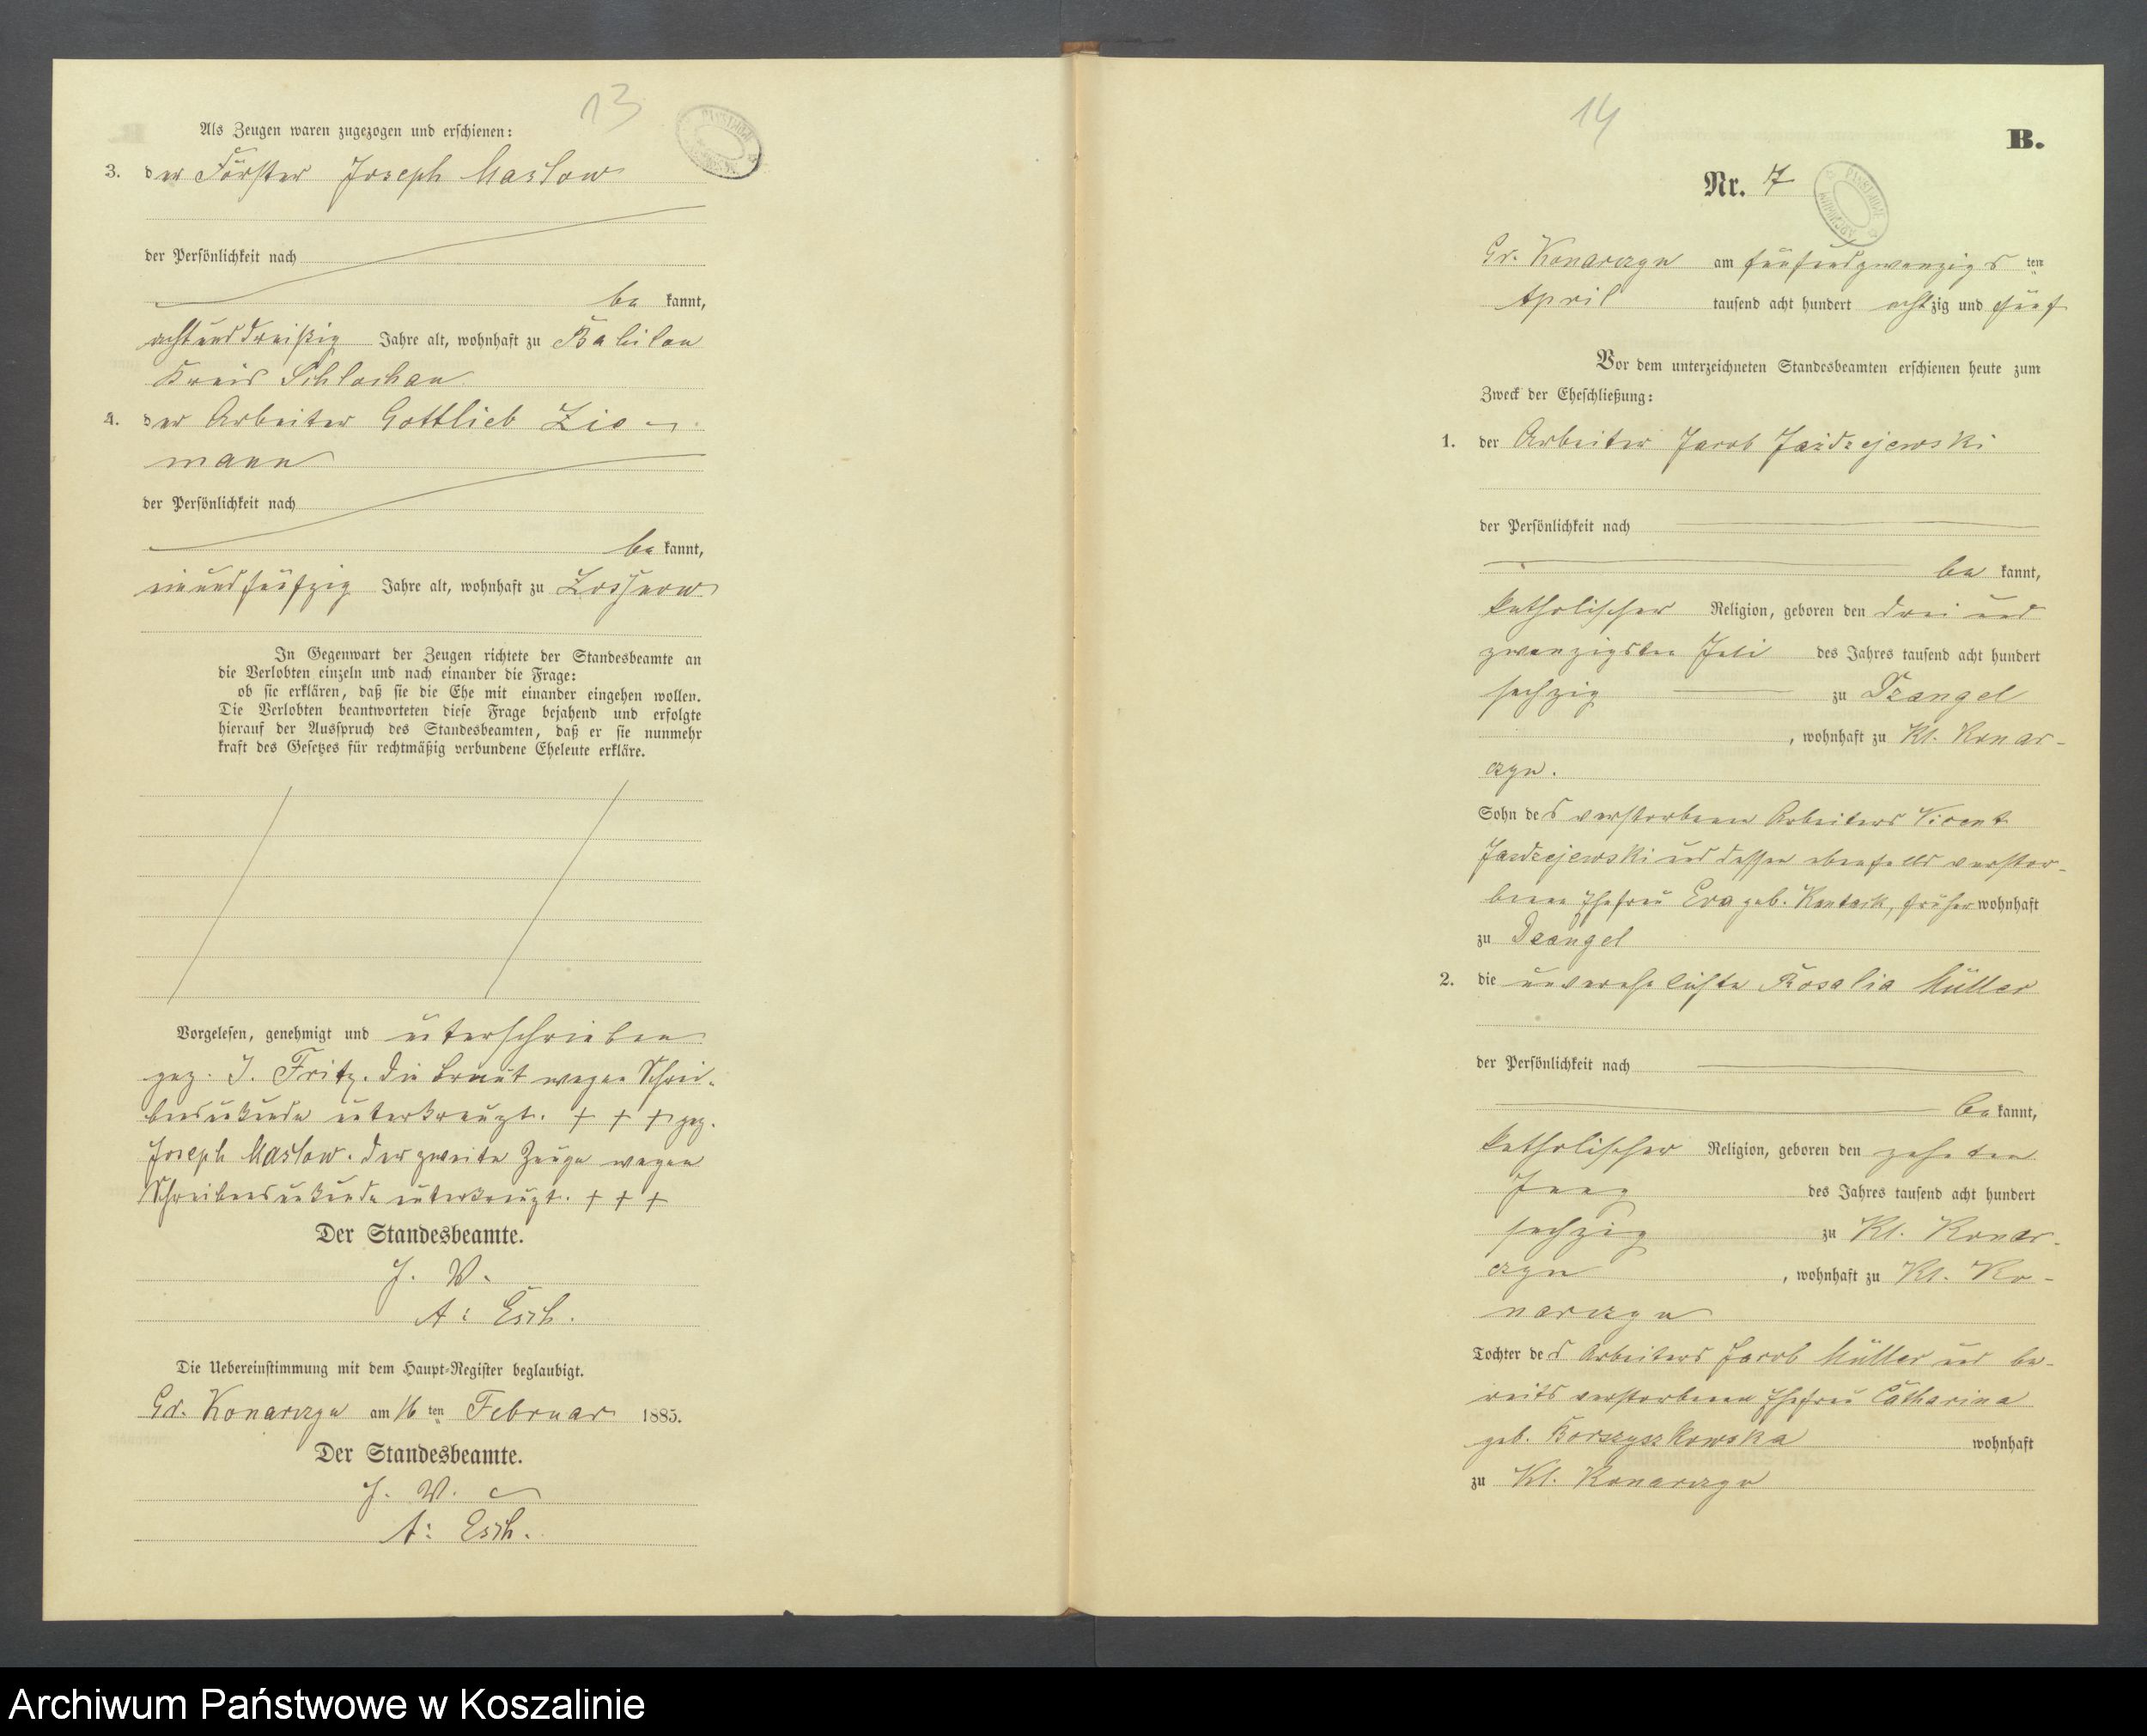 13
Als Zeugen waren zugezogen und erschienen:
3. der Förster Joseph Maslow
der Persönlichkeit nach
be kannt,
achtunddreißig Jahre alt, wohnhaft zu Babilon
Kreis Schlochau
4. der Arbeiter Gottlieb Zie-
mann
der Persönlichkeit nach
be kannt,
einundfünfzig Jahre alt, wohnhaft zu
In Gegenwart der Zeugen richtete der Standesbeamte an
die Verlobten einzeln und nach einander die Frage:
ob sie erklären, daß sie die Ehe mit einander eingehen wollen.
Die Verlobten beantworteten diese Frage bejahend und erfolgte
hierauf der Ausspruch des Standesbeamten, daß er sie nunmehr
kraft des Gesetzes für rechtmäßig verbundene Eheleute erkläre.
Vorgelesen, genehmigt und unterschrieben
gez. J. Fritz. Die Braut wegen Schrei-
bensunkunde unterkreuzt. + + + gez.
Joseph Maslow. Der zweite Zeuge wegen
Schreibensunkunde unterkreuzt. + + +
Der Standesbeamte.
J. V.
A: Esch.
Die Uebereinstimmung mit dem Haupt-Register beglaubigt.
Gr. Konarczyn am 16 ten Februar 1885.
Der Standesbeamte.
J. V.
A: Esch.
14
B.
Nr. 7
Gr. Konarczyn am fünfundzwanzigs ten
April tausend acht hundert achtzig und fünf
Vor dem unterzeichneten Standesbeamten erschienen heute zum
Zweck der Eheschließung:
1. der Arbeiter Jacob Jazdzejewski
der Persönlichkeit nach
be kannt,
katholischer Religion, geboren den drei und
zwanzigsten Juli des Jahres tausend acht hundert
sechzig zu Dzangel
, wohnhaft zu Kl. Konar-
czyn.
Sohn des verstorbenen Arbeiters Vicent
Jazdzejewski und dessen ebenfalls verstor-
benen Ehefrau Eva geb. Kantack, früher wohnhaft
zu Dzangel
2. die unverehelichte Rosalia Müller
der Persönlichkeit nach
be kannt,
katholischer Religion, geboren den zehnten
des Jahres tausend acht hundert
sechzig zu Kl. Konar-
czyn , wohnhaft zu Kl. Ko-
narczyn
Tochter des Arbeiters Jacob Müller und be-
reits verstorbenen Ehefrau Catharina
geb. Borszyszkowska wohnhaft
zu Kl. Konarczyn
Archiwum Państwowe w Koszalinie